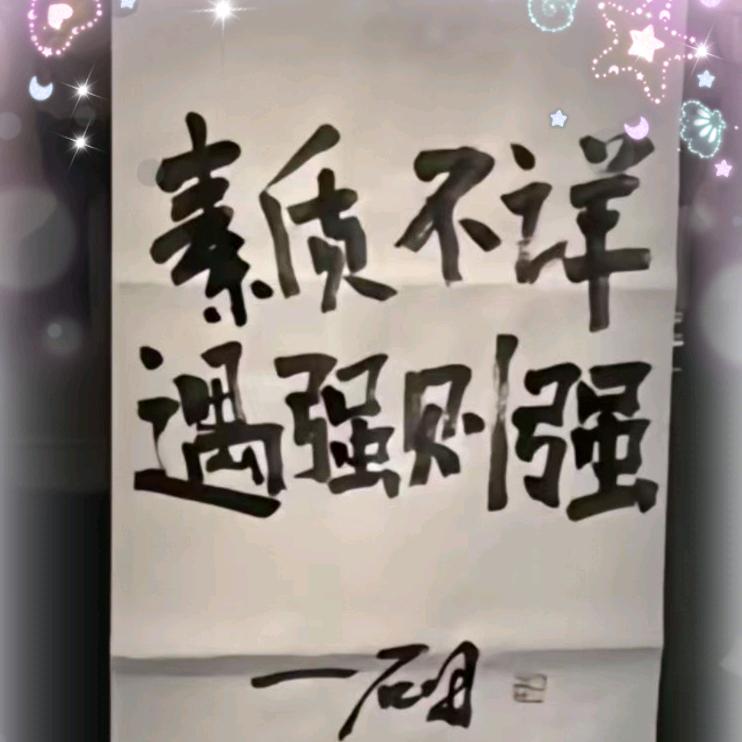 素质不详
遇强则强